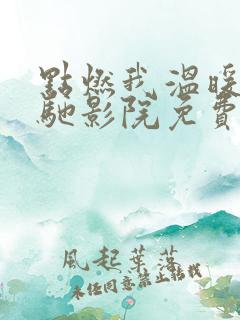 點燃我溫暖
馳影院免費
風起葉落
未經同意禁止轉載